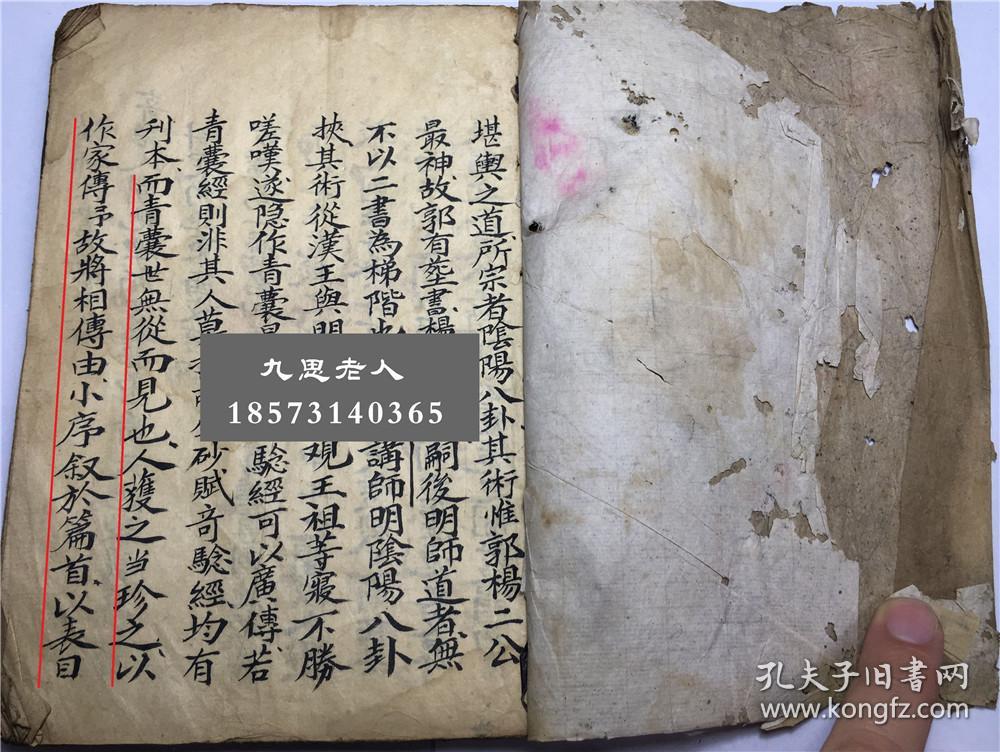 堪輿之道所宗者陰陽八卦其術惟郭楊二公
最神故郭有塟書楊嗣後明師道者無
不以二書為梯階也講師明陰陽八卦
挾其術從漢王與明观王祖等寢不勝
嗟嘆遂隐作青囊騐經可以廣傳若
青囊經則非其人莫砂賦竒騐經均有
刋本而青囊世無從而見也人獲之当珍之以
作家傳予故將相傳由小序叙於篇首以表目
九思老人
18573140365
孔夫子旧书网
www.kongfz.com